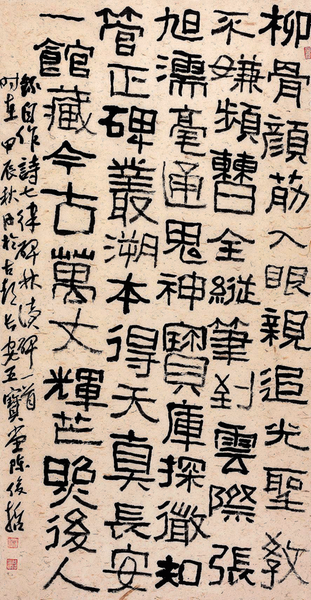 柳骨顏筋入眼親追光聖教
不嫌頻曹全縱筆到雲際張
旭濡毫通鬼神寶庫探微知
管正碑叢溯本得天真長安
一館藏今古萬丈輝芒照後人
錄自作詩七律碑林讀碑一首
时在甲辰秋月於古都长安五寶堂陈俊哲